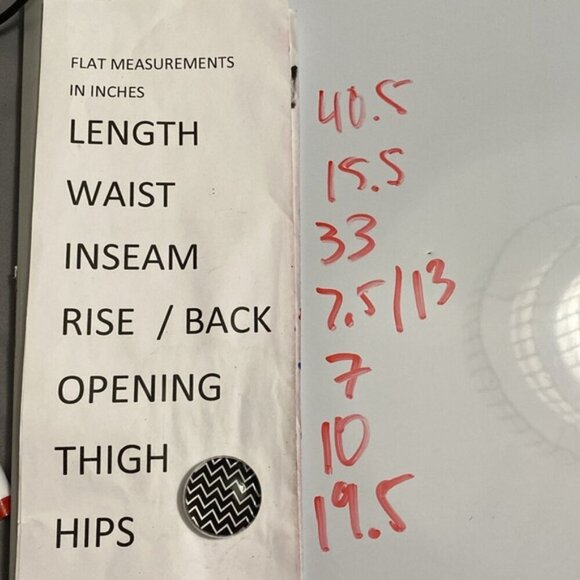 FLAT MEASUREMENTS
IN INCHES
LENGTH 40.5
WAIST 15.5
INSEAM 33
RISE / BACK 7.5/13
OPENING 7
THIGH 10
HIPS 19.5